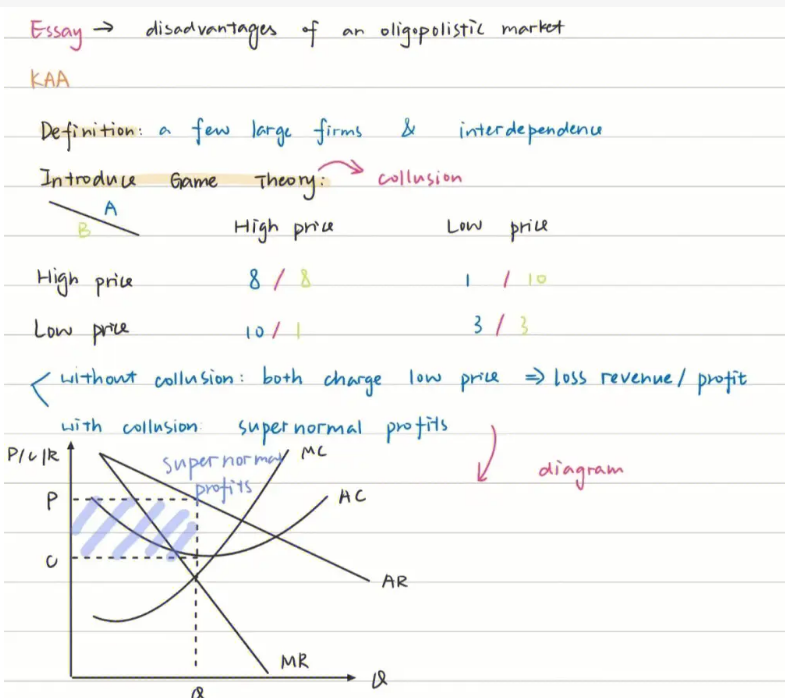 Essay → disadvantages of an oligopolistic market
KAA
Definition: a few large firms & interdependence
Introduce Game Theory: collusion
A
B High price Low price
High price 8 / 8 1 / 10
Low price 10 / 1 3 / 3
without collusion: both charge low price ⇒ loss revenue / profit
with collusion: supernormal profits
P/C/R supernormal MC diagram
profits
P AC
C
AR
MR
Q Q